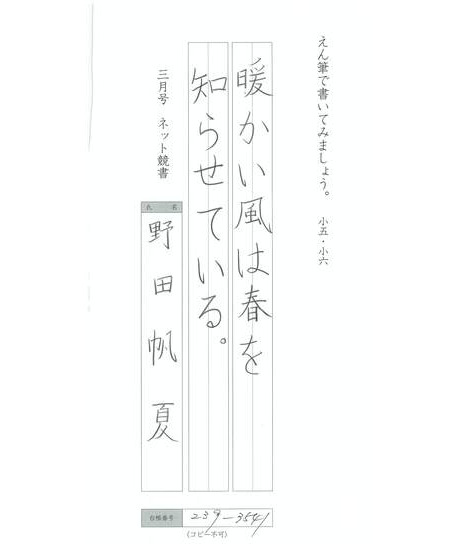 えん筆で書いてみましょう。 小五・小六
暖かい風は春を
知らせている。
三月号 ネット競書
氏 名
野田帆夏
台帳番号
239-3541
(コピー不可)